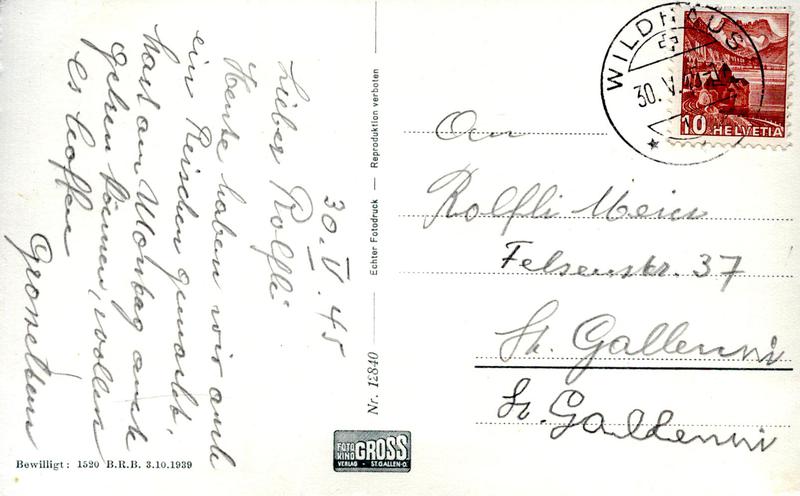 30. V. 45
Lieber Rolfli
Heute haben wir auch
ein Reischen gemacht,
hast am Montag auch
gehen können, wollen
es hoffen
Grosseltern
Bewilligt: 1520 B.R.B. 3.10.1939
Nr. 12840
Echter Fotodruck — Reproduktion verboten
FOTO
KINO
GROSS
VERLAG · ST.GALLEN-O.
WILDHAUS
30. V.
10 HELVETIA
An
Rolfli Meier
Felsenstr. 37
St. Gallen
St. Gallen